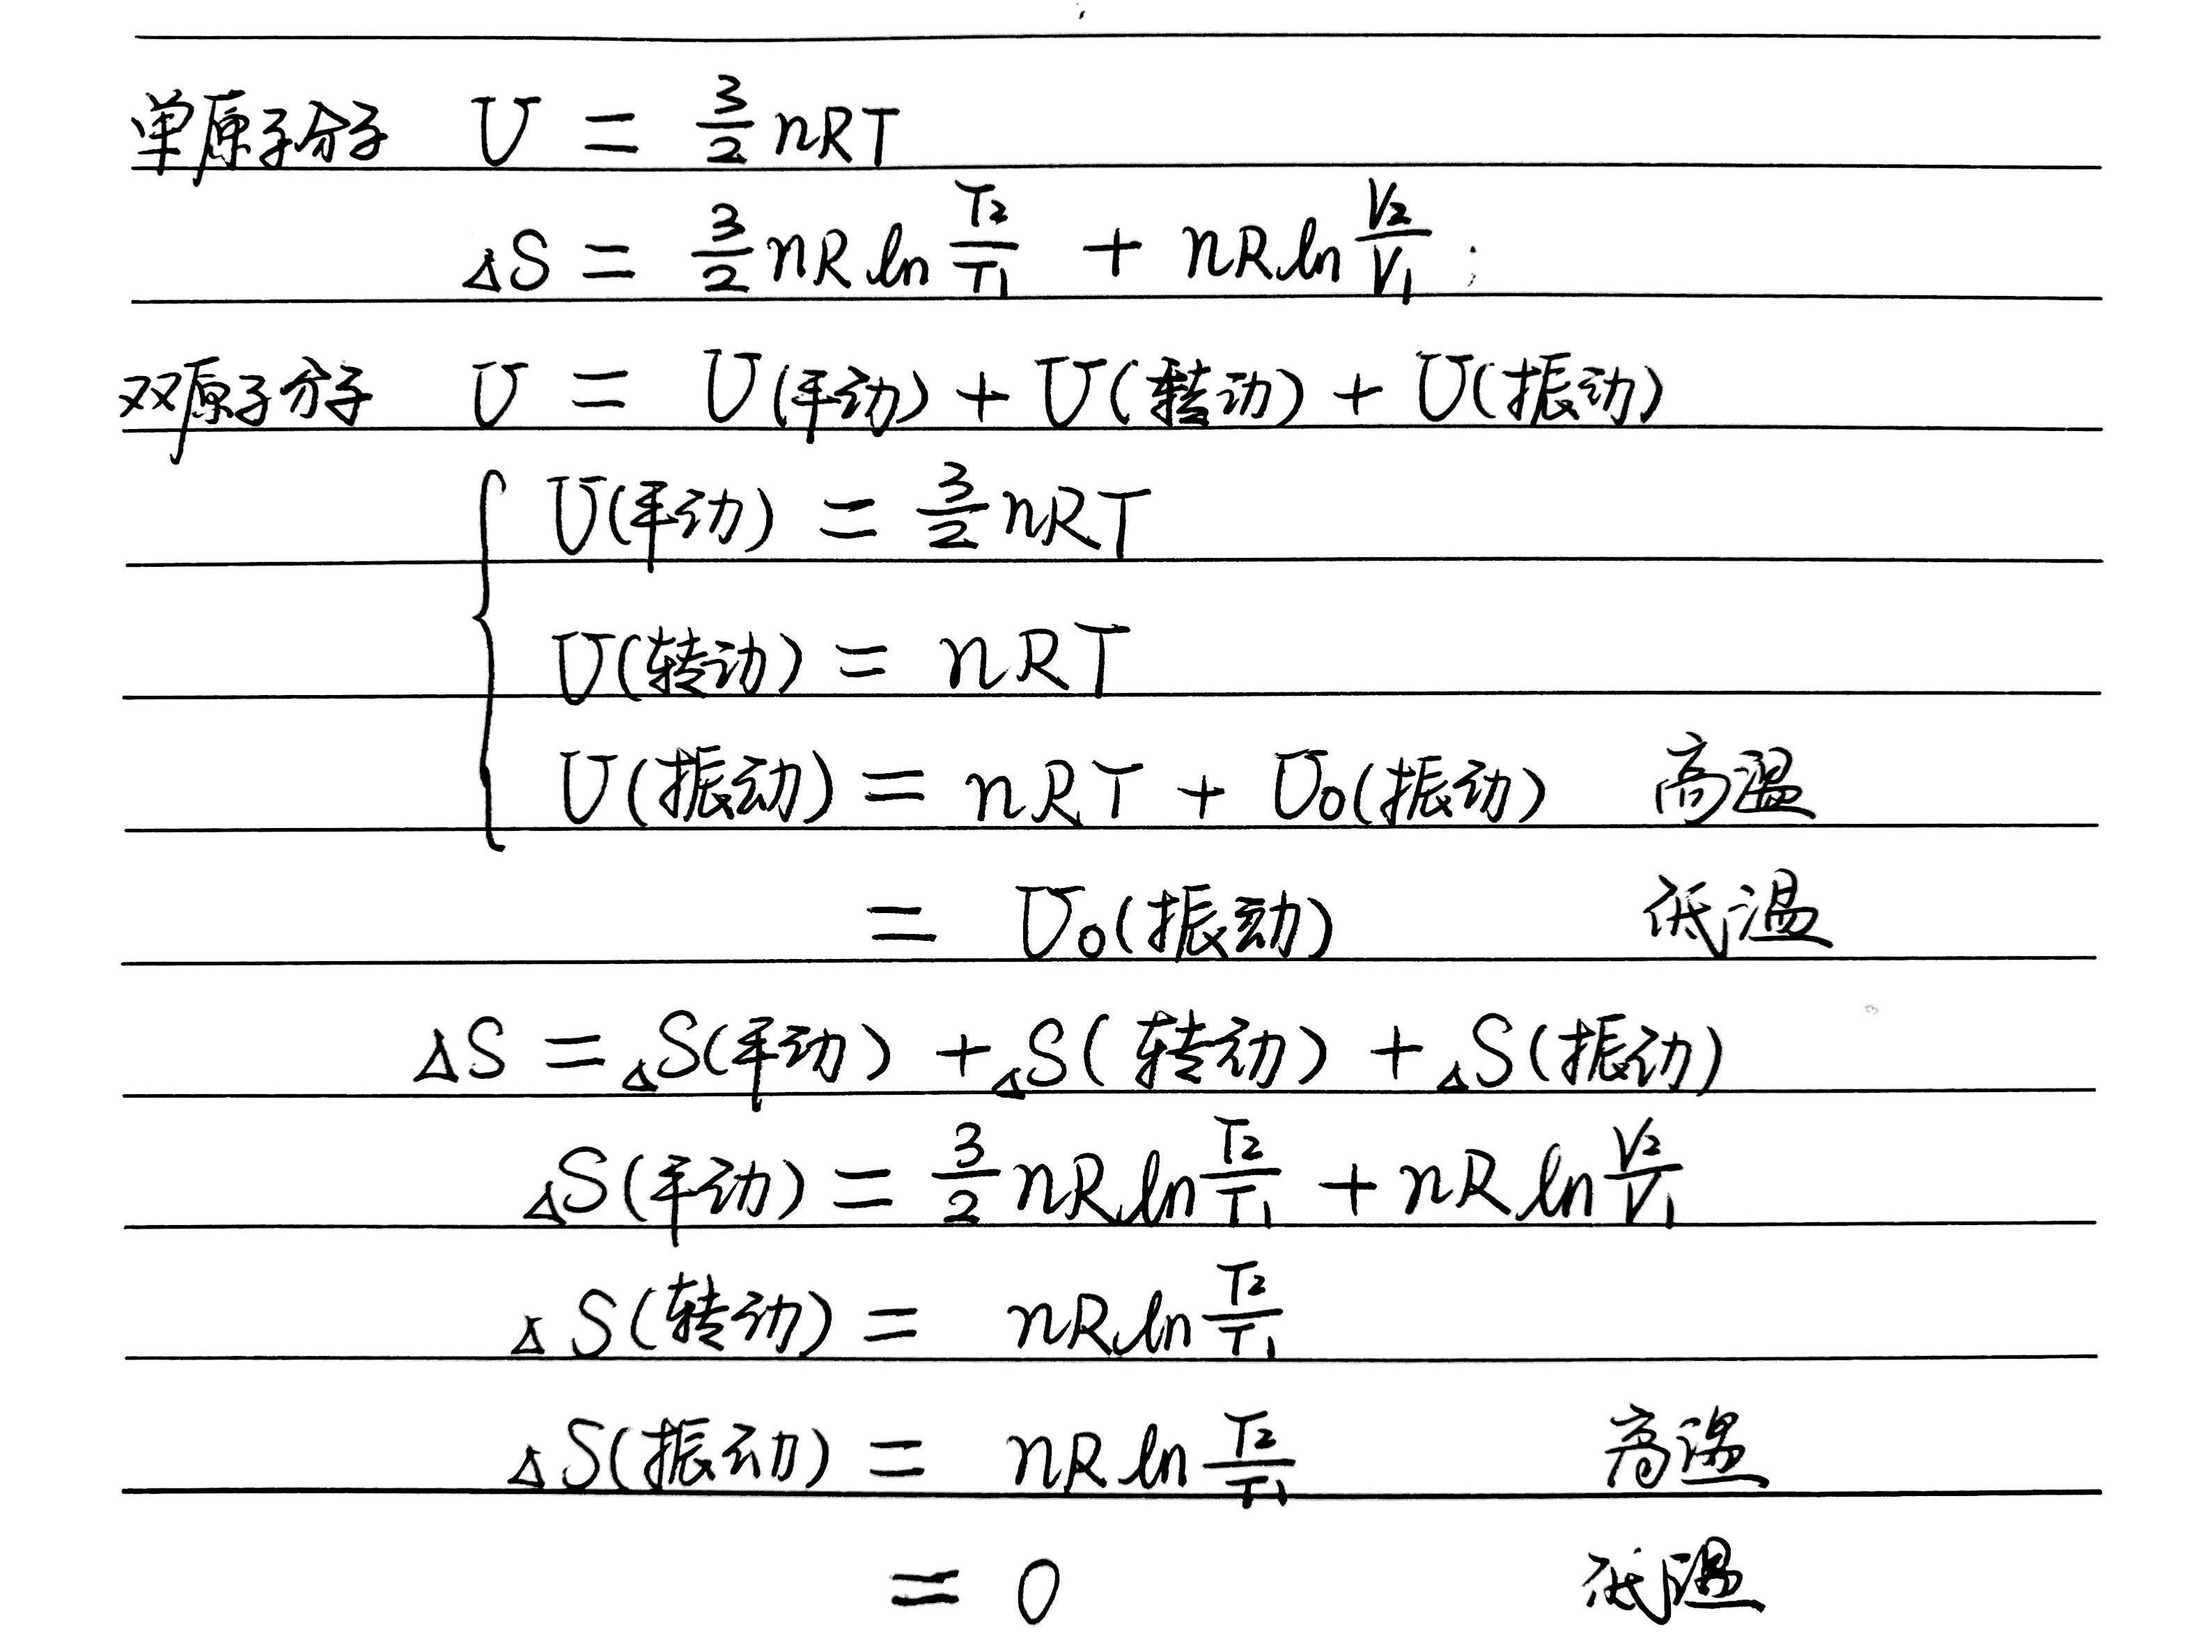 单原子分子 U = 3/2 nRT
ΔS = 3/2 nR ln T₂/T₁ + nR ln V₂/V₁ ;
双原子分子 U = U(平动) + U(转动) + U(振动)
U(平动) = 3/2 nRT
U(转动) = nRT
U(振动) = nRT + U₀(振动) 高温
= U₀(振动) 低温
ΔS = ΔS(平动) + ΔS(转动) + ΔS(振动)
ΔS(平动) = 3/2 nR ln T₂/T₁ + nR ln V₂/V₁
ΔS(转动) = nR ln T₂/T₁
ΔS(振动) = nR ln T₂/T₁ 高温
= 0 低温